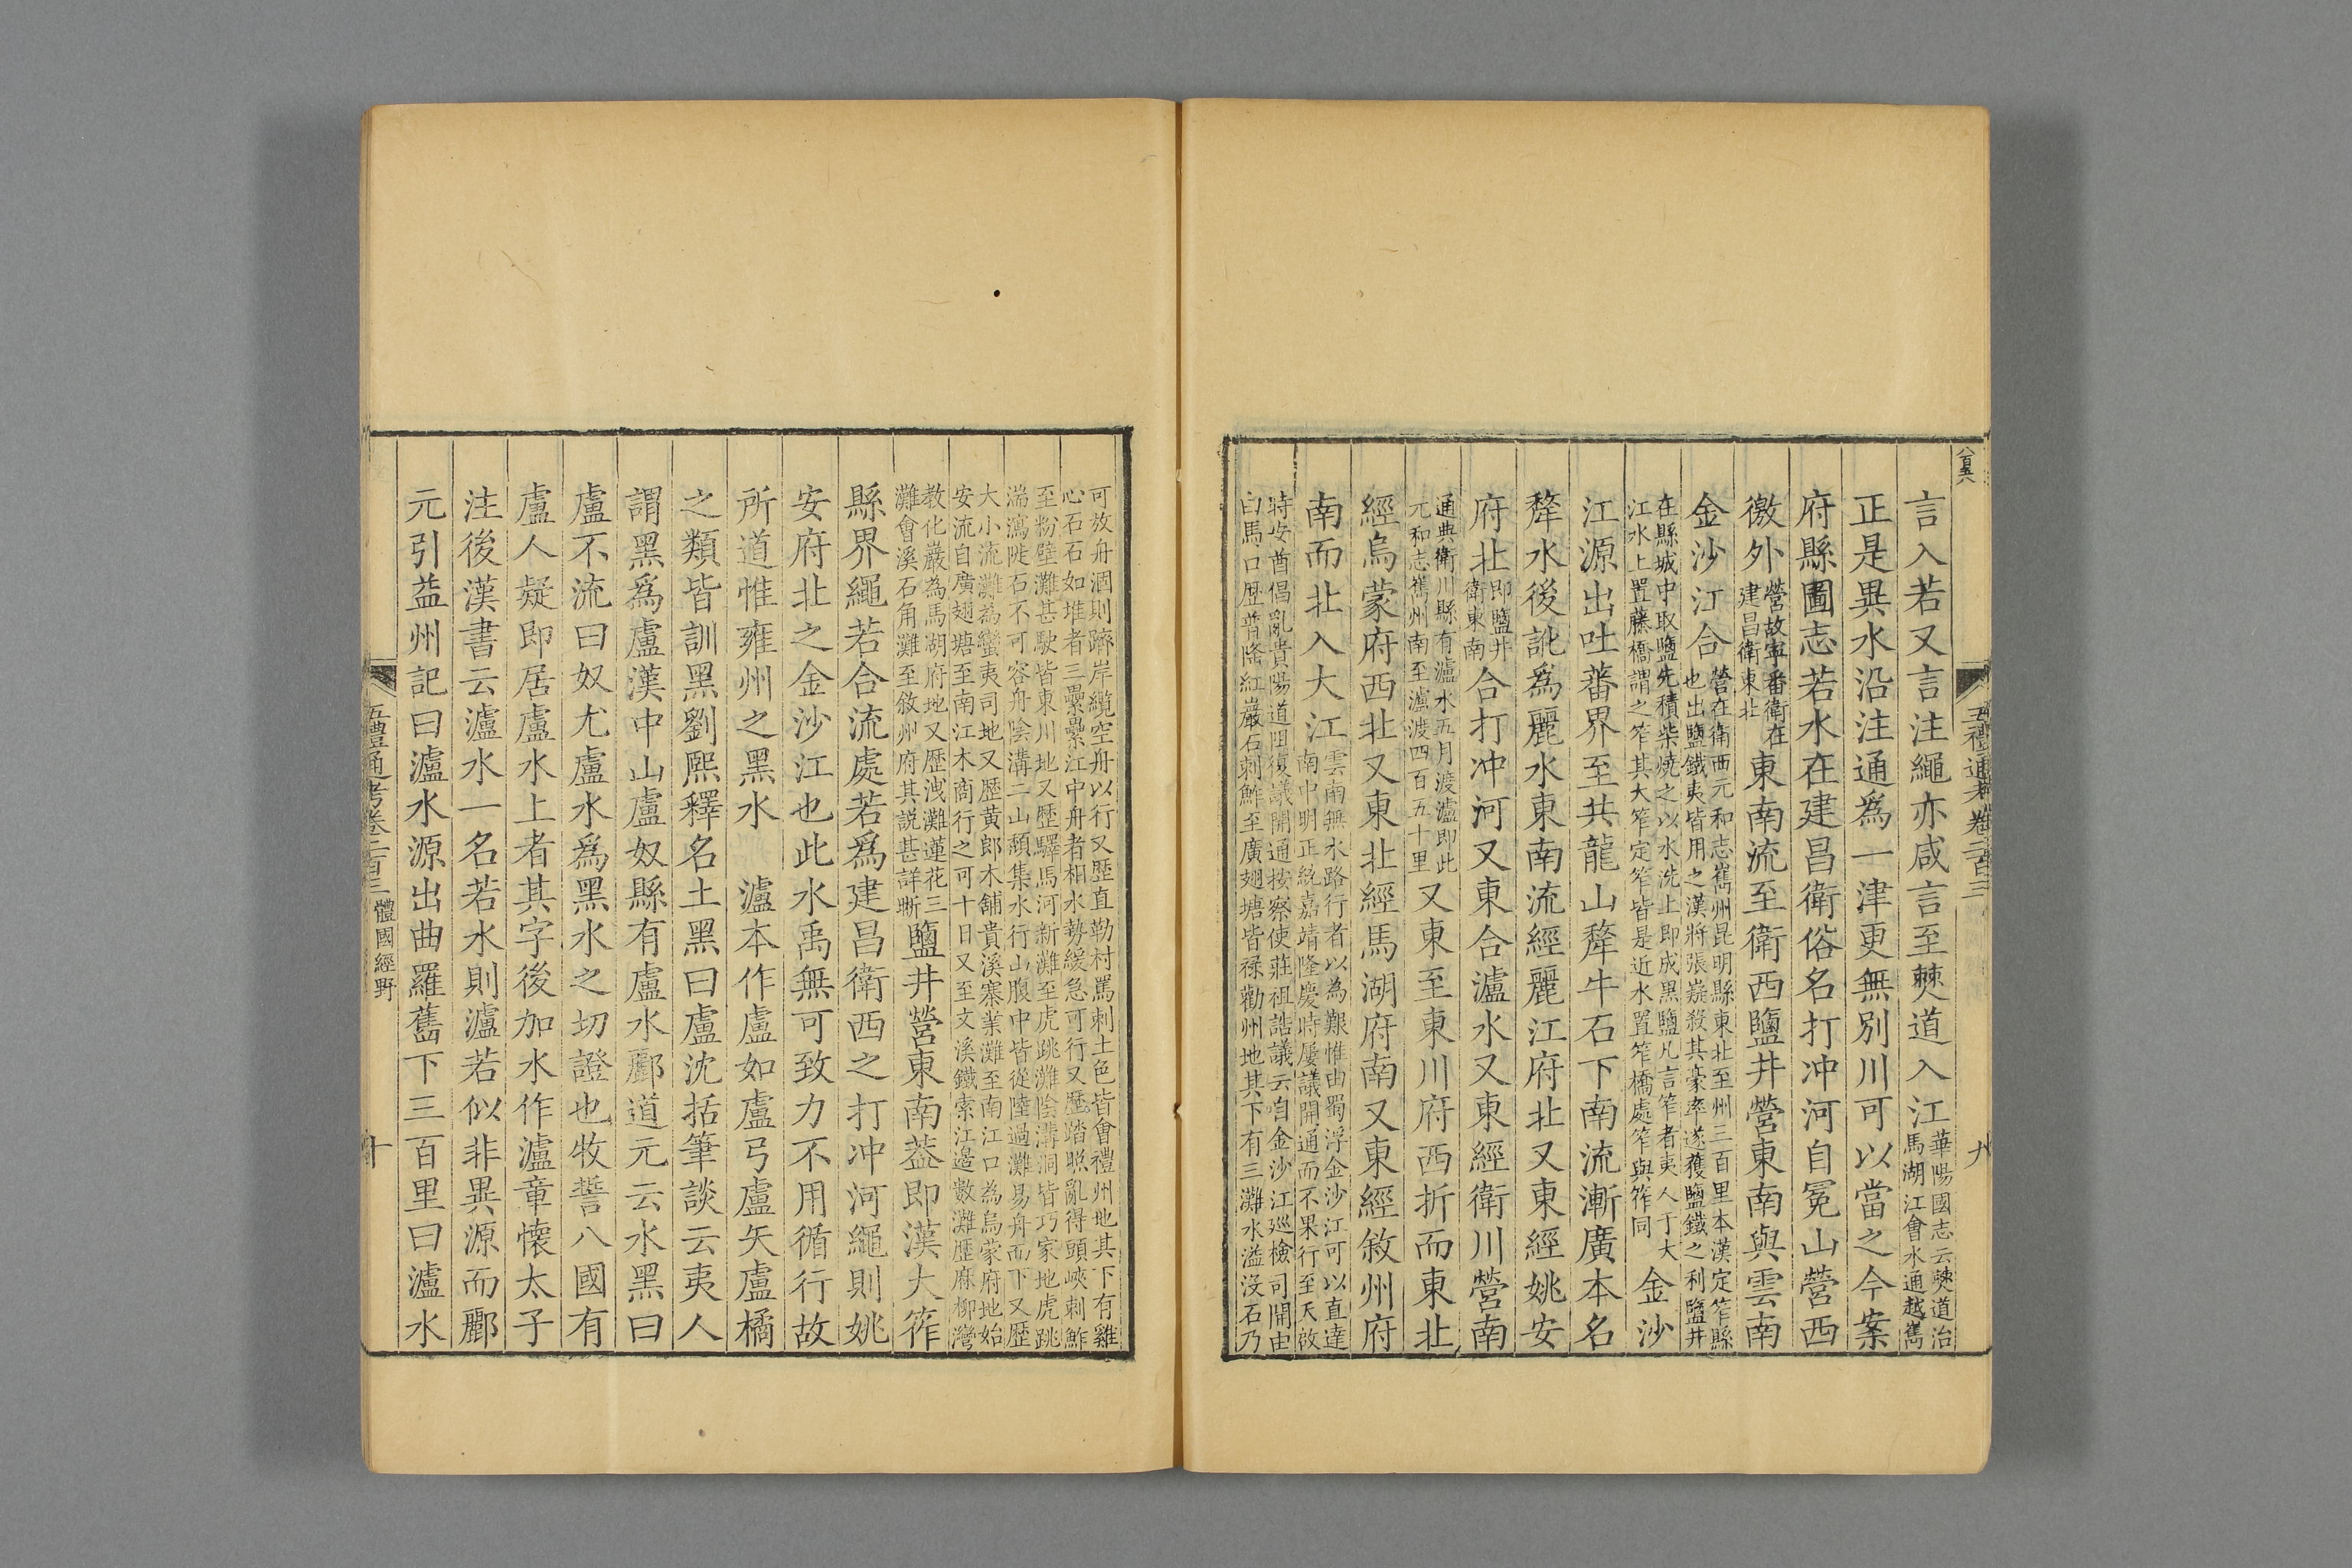 五禮通考卷二百三
九
言入若又言注繩亦咸言至僰道入江華陽國志云僰道治馬湖江會水通越嶲
正是異水沿注通爲一津更無別川可以當之今案
府縣圖志若水在建昌衛俗名打冲河自冕山營西
徼外營故寧番衛在建昌衛東北東南流至衛西鹽井營東南與雲南
金沙江合營在衛西元和志嶲州昆明縣東北至州三百里本漢定筰縣也出鹽鐵夷皆用之漢將張嶷殺其豪率遂獲鹽鐵之利鹽井
在縣城中取鹽先積柴燒之以水洗土即成黑鹽凡言筰者夷人于大江水上置藤橋謂之筰其大筰定筰皆是近水置筰橋處筰與筰同金沙
江源出吐蕃界至共龍山犛牛石下南流漸廣本名
犛水後訛爲麗水東南流經麗江府北又東經姚安
府北即鹽井衛東南合打冲河又東合瀘水又東經衛川營南
通典衛川縣有瀘水五月渡瀘即此元和志嶲州南至瀘渡四百五十里又東至東川府西折而東北
經烏蒙府西北又東北經馬湖府南又東經敘州府
南而北入大江雲南無水路行者以為艱惟由蜀浮金沙江可以直達南中明正統嘉靖隆慶時屢議開通而不果行至天啟
時安酋倡亂貴陽道阻復議開通按察使莊祖誥議云自金沙江廵檢司開由白馬口歴普隆紅巖石刺鮓至廣翅塘皆祿勸州地其下有三灘水溢沒石乃
可放舟涸則躋岸纜空舟以行又歴直勒村罵刺土色皆會禮州地其下有雞心石石如堆者三纍纍江中舟者相水勢緩急可行又歴踏照亂得頭峽刺鮓
至粉壁灘甚駛皆東川地又歴驛馬河新灘至虎跳灘陰溝洞皆巧家地虎跳湍瀉陡石不可容舟陰溝二山頽集水行山腹中皆從陸過灘易舟而下又歴
大小流灘為蠻夷司地又歴黄郎木舖貴溪寨業灘至南江口為烏蒙府地始安流自廣翅塘至南江木商行之可十日又至文溪鐵索江邊數灘歴麻柳灣
教化巖為馬湖府地又歴洩灘蓮花三灘會溪石角灘至敘州府其説甚詳晰鹽井營東南葢即漢大筰
縣界繩若合流處若爲建昌衛西之打冲河繩則姚
安府北之金沙江也此水禹無可致力不用循行故
所道惟雍州之黑水　瀘本作盧如盧弓盧矢盧橘
之類皆訓黑劉熙釋名土黑曰盧沈括筆談云夷人
謂黑爲盧漢中山盧奴縣有盧水酈道元云水黑曰
盧不流曰奴尤盧水爲黑水之切證也牧誓八國有
盧人疑即居盧水上者其字後加水作瀘章懷太子
注後漢書云瀘水一名若水則瀘若似非異源而酈
元引益州記曰瀘水源出曲羅嶲下三百里曰瀘水
五禮通考卷二百三　體國經野
十